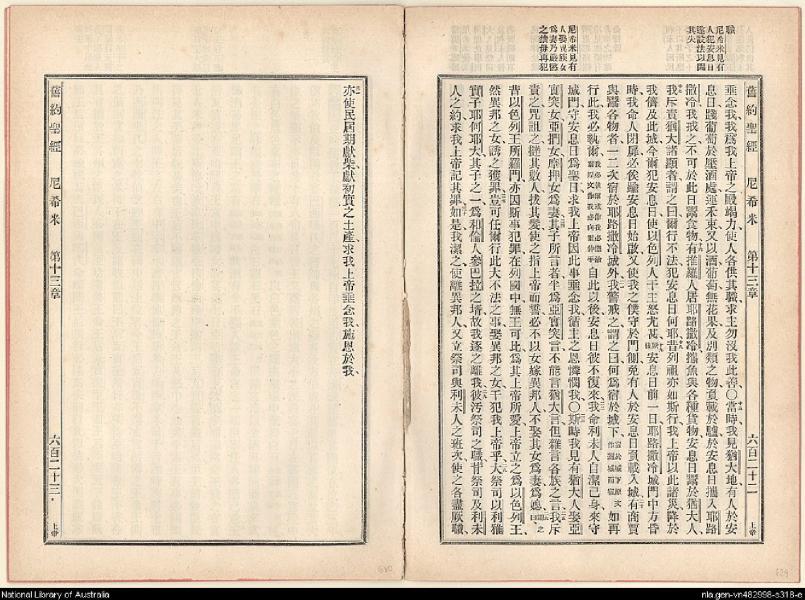 職
尼希米見有
人犯安息日
遂設法以闢
其失
尼希米見有
人娶異族女
為妻乃嚴懲
之禁毋再犯
舊約聖經 尼希米 第十三章 六百二十二 上帝
垂念我我爲我上帝之殿竭力使人各供其職求主勿沒我此善〇當時我見猶大地有人於安
息日踐葡萄於壓酒處運禾束又以酒葡萄無花果及別類之物負載於驢於安息日攜入耶路
撒冷我戒之不可於此日鬻食物有推羅人居耶路撒冷攜魚與各種貨物安息日鬻於猶大人
我斥責猶大諸顯者謂之曰爾行不法犯安息日何耶昔列祖亦如斯行我上帝以此諸災降於
我儕及此城今爾犯安息日使以色列人干主怒尤甚安息日前一日耶路撒冷城門中方昏
時我命人閉扉必俟踰安息日始啟又使我之僕守於門側免有人於安息日負載入城有商賈
與鬻各物者一二次宿於耶路撒冷城外我警戒之謂之曰何爲宿於城下如再
行此我必執爾自此以後安息日彼不復來我命利未人自潔己身來守
城門守安息日爲聖日求我上帝因此事垂念我循主之恩憐憫我〇斯時我見有猶大人娶亞
實突女亞捫女摩押女爲妻其子所言者半爲亞實突言不能言猶大言但雜言各族之言我斥
責之咒詛之撻其數人拔其髮使之指上帝而誓必不以女嫁異邦人不娶其女爲妻爲媳曰
昔以色列王所羅門亦因斯事犯罪在列國中無王可比爲其上帝所愛上帝立之爲以色列王
然異邦之女誘之獲罪豈可任爾行此大不法之事娶異邦之女干犯我上帝乎大祭司以利雅
實子耶何耶大其子之一爲和倫人參巴拉之壻故我逐之離我彼污祭司之職背祭司及利未
人之約求我上帝記其罪如是我潔之使離異邦人又立祭司與利未人之班次使之各盡厥職
亦使民屆期獻柴獻初實之土產求我上帝垂念我施恩於我
舊約聖經 尼希米 第十三章 六百二十三 上帝
National Library of Australia
nla.gen-vn482998-s318-e